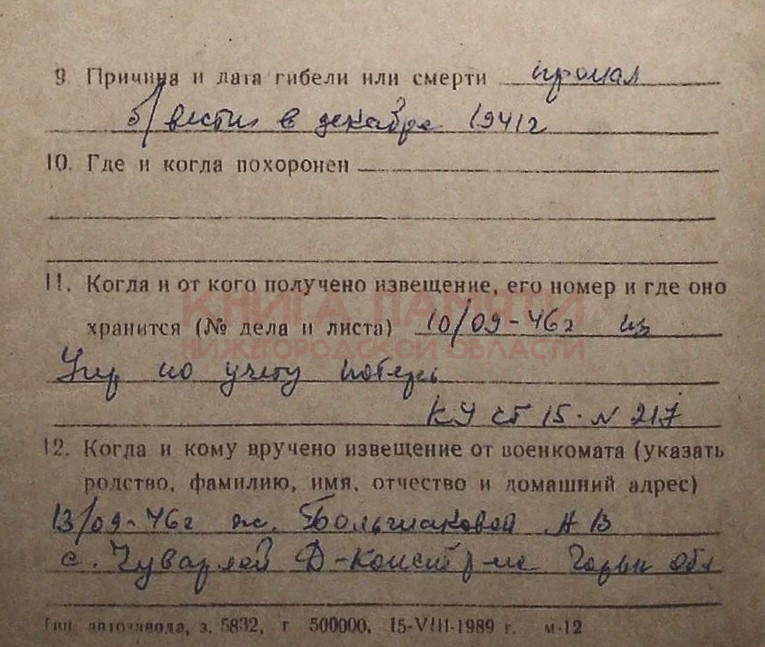 9. Причина и дата гибели или смерти пропал
б/вести в декабре 1941г
10. Где и когда похоронен
11. Когда и от кого получено извещение, его номер и где оно
КНИГА ПАМЯТИ
хранится (№ дела и листа) 10/09-46г из
НИЖЕГОРОДСКОЙ ОБЛАСТИ
Упр по учету потерь
КУ ст 15. N 217
12. Когда и кому вручено извещение от военкомата (указать
родство, фамилию, имя, отчество и домашний адрес)
13/09-46г ж. Большаковой А В
с. Чуварлей Д-Конст р-на Горьк обл
Тип. автозавода, з. 5832, т 500000, 15-VIII-1989 г. м-12